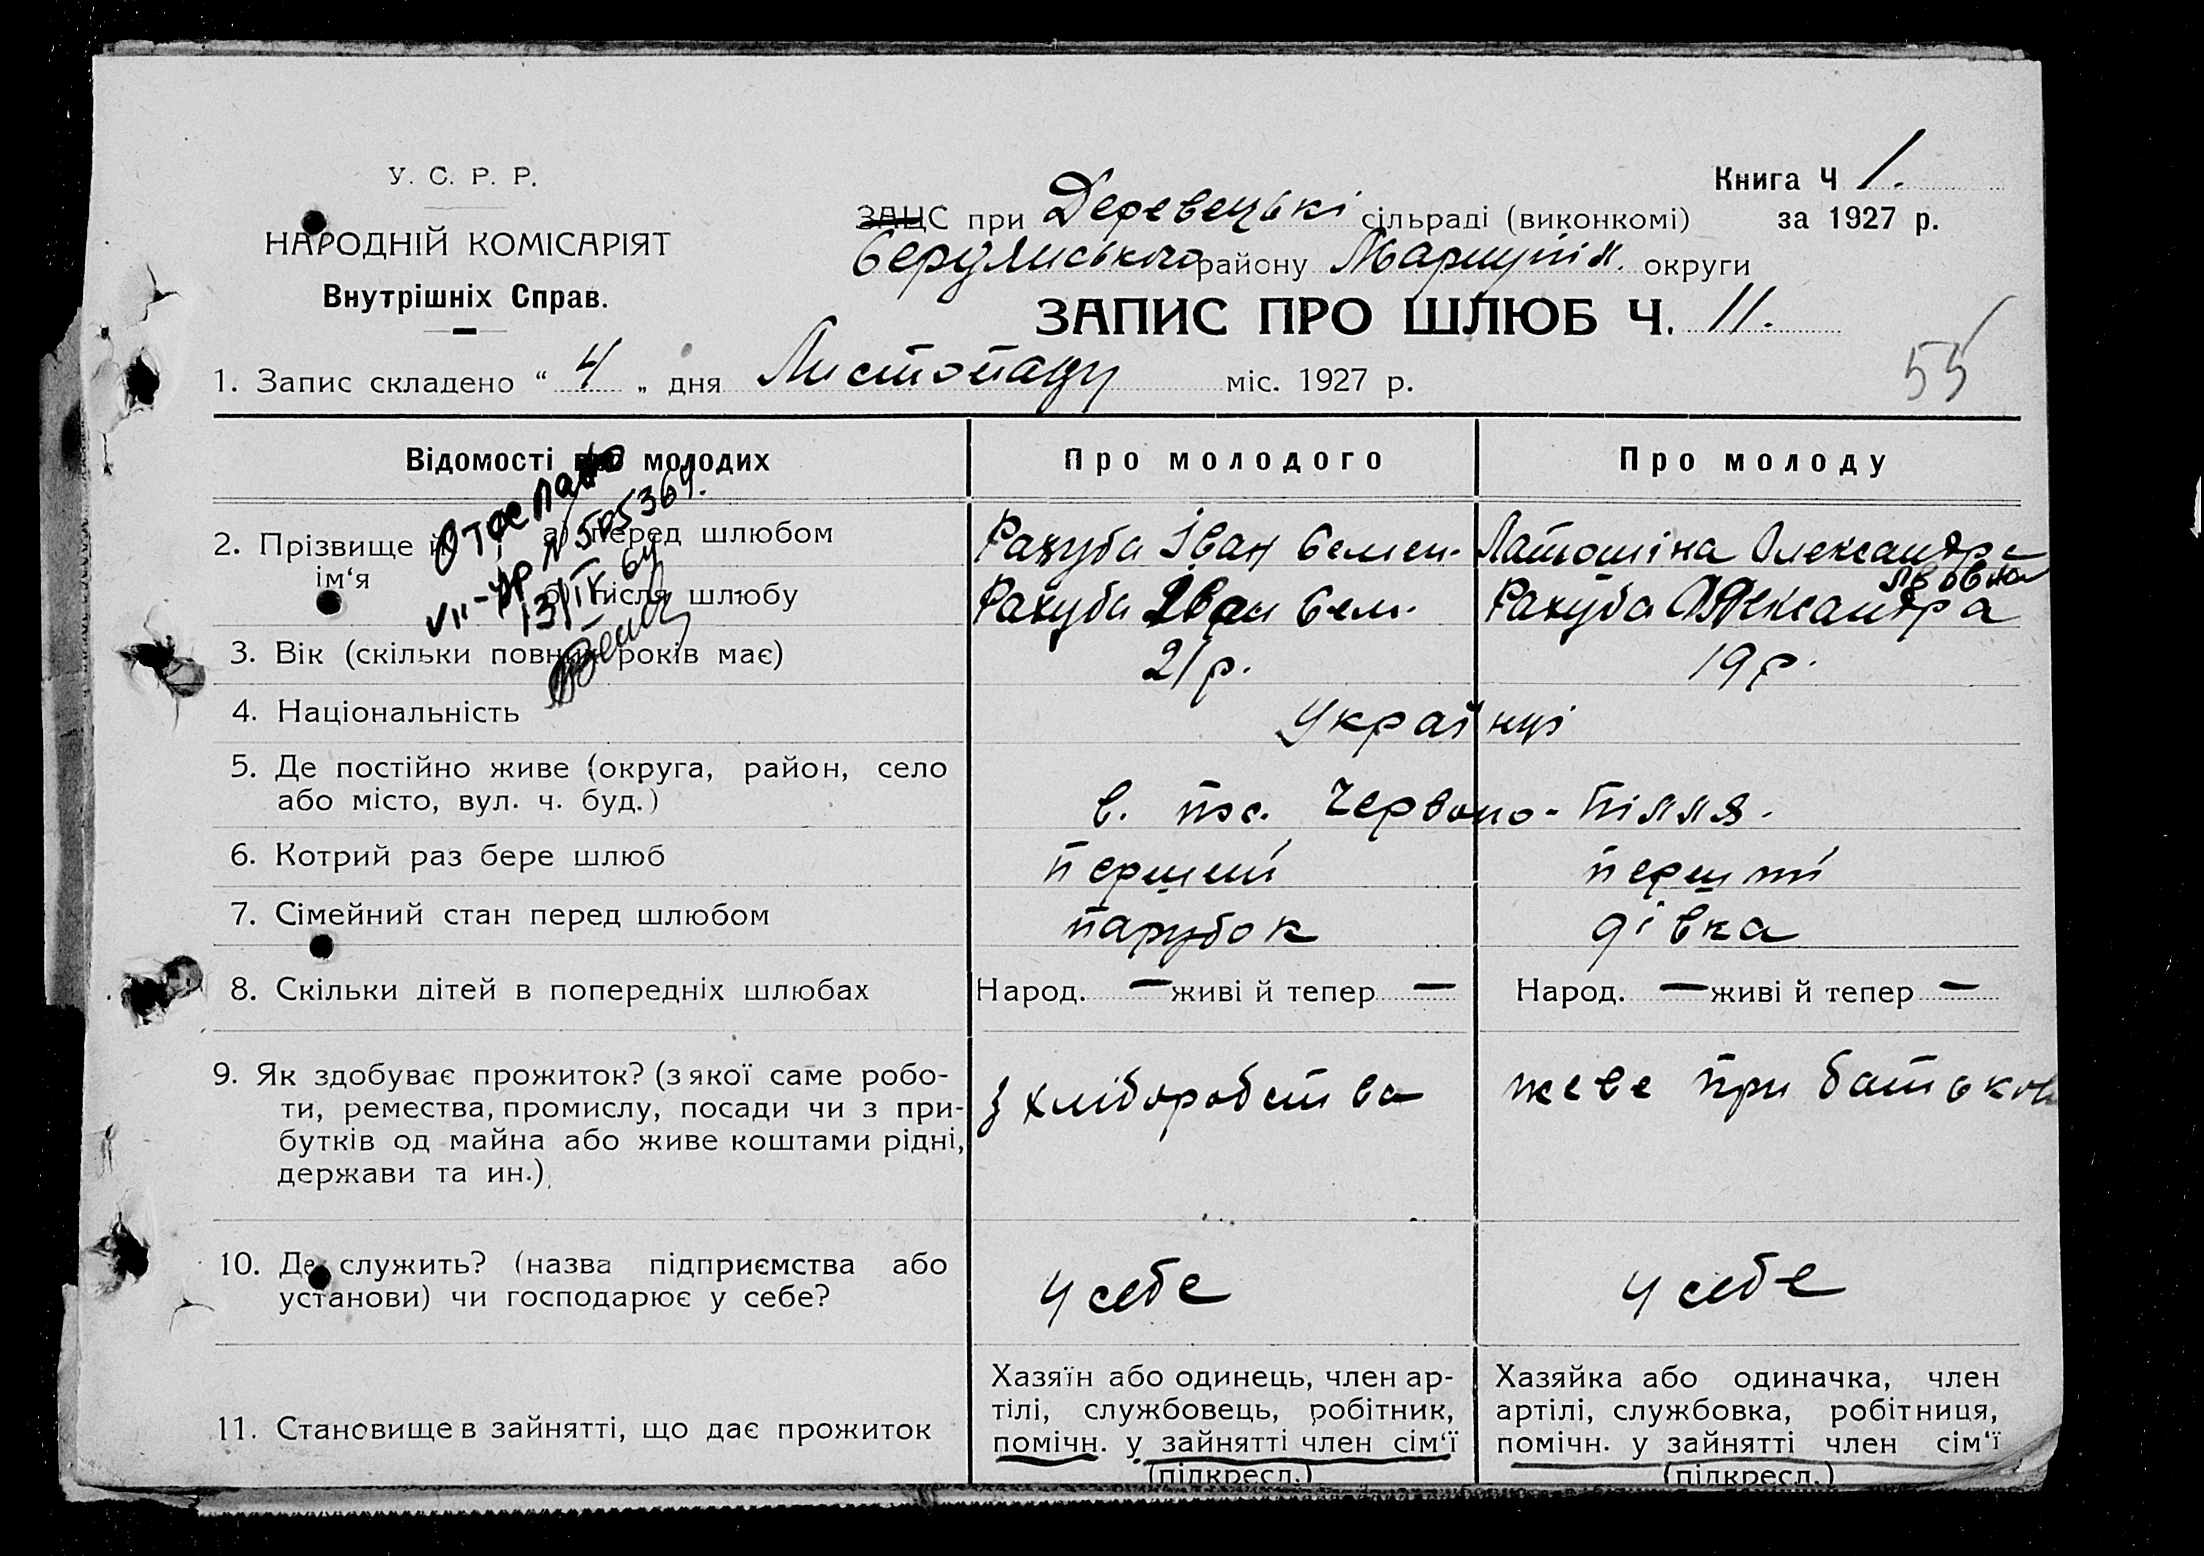 У. С. Р. Р.
НАРОДНІЙ КОМІСАРІЯТ
Внутрішніх Справ.
Книга Ч 1.
за 1927 р.
ЗАЦС при Деревецькі сільраді (виконкомі)
району Маріупіл. округи
ЗАПИС ПРО ШЛЮБ Ч. 11.
55
1. Запис складено “ 4 „ дня Листопаду міс. 1927 р.
Відомості про молодих
Про молодого
Про молоду
Отослано
VII-УР N 505364.
13/IV 64
2. Прізвище й ім‘я
а) перед шлюбом
Рахуба Іван Семен.
Латошіна Олександра
Львовна
б) після шлюбу
Рахуба Іван Сем.
Рахуба Олександра
3. Вік (скільки повних років має)
21 р.
19 р.
4. Національність
Українці
5. Де постійно живе (округа, район, село
або місто, вул. ч. буд.)
в. пос. Червоно-Пілля.
6. Котрий раз бере шлюб
перший
перший
7. Сімейний стан перед шлюбом
парубок
дівка
8. Скільки дітей в попередніх шлюбах
Народ. — живі й тепер —
Народ. — живі й тепер —
9. Як здобуває прожиток? (з якої саме робо-
ти, ремества, промислу, посади чи з при-
бутків од майна або живе коштами рідні,
держави та ин.)
з хліборобства
жеве при батькові
10. Де служить? (назва підприємства або
установи) чи господарює у себе?
у себе
у себе
11. Становище в зайнятті, що дає прожиток
Хазяїн або одинець, член ар-
тілі, службовець, робітник,
помічн. у зайнятті член сім‘ї
(підкресл.)
Хазяйка або одиначка, член
артілі, службовка, робітниця,
помічн. у зайнятті член сім‘ї
(підкресл.)